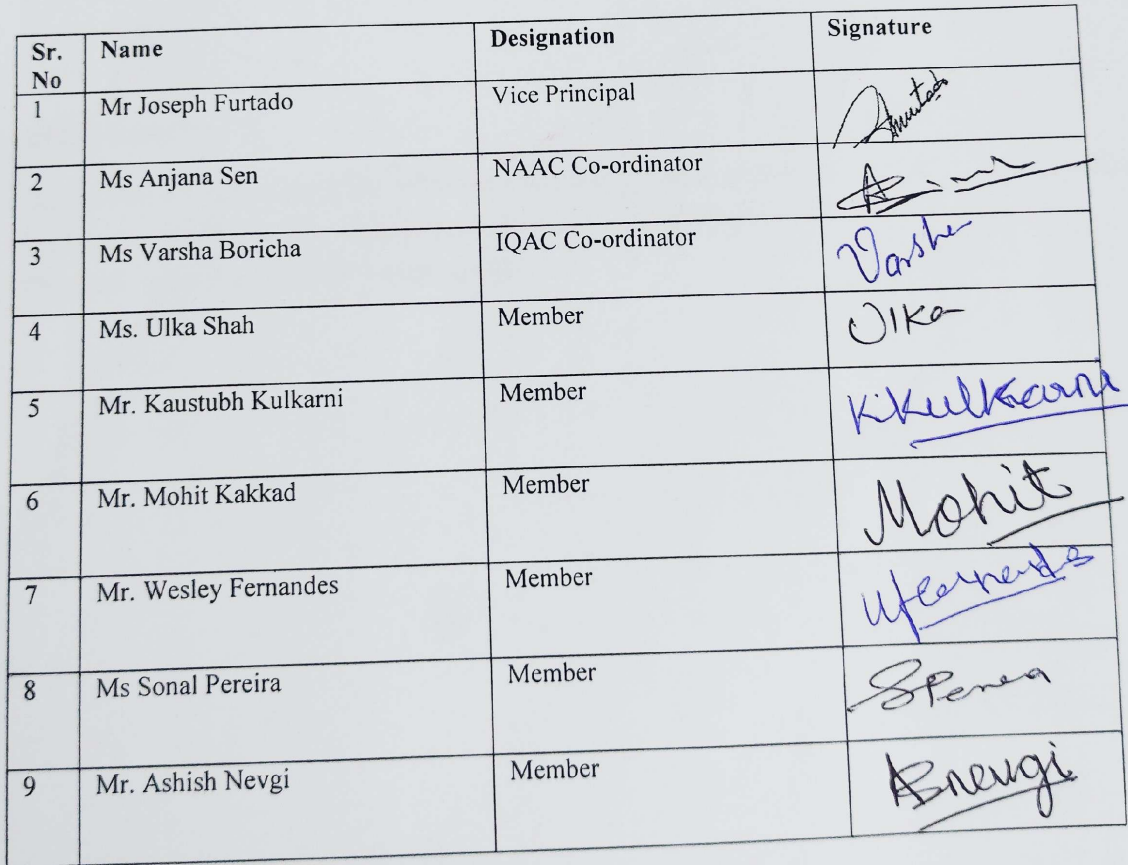 Sr. No Name Designation Signature
1 Mr Joseph Furtado Vice Principal
2 Ms Anjana Sen NAAC Co-ordinator
3 Ms Varsha Boricha IQAC Co-ordinator Varsha
4 Ms. Ulka Shah Member Ulka
5 Mr. Kaustubh Kulkarni Member K.Kulkarni
6 Mr. Mohit Kakkad Member Mohit
7 Mr. Wesley Fernandes Member
8 Ms Sonal Pereira Member
9 Mr. Ashish Nevgi Member ASnevgi